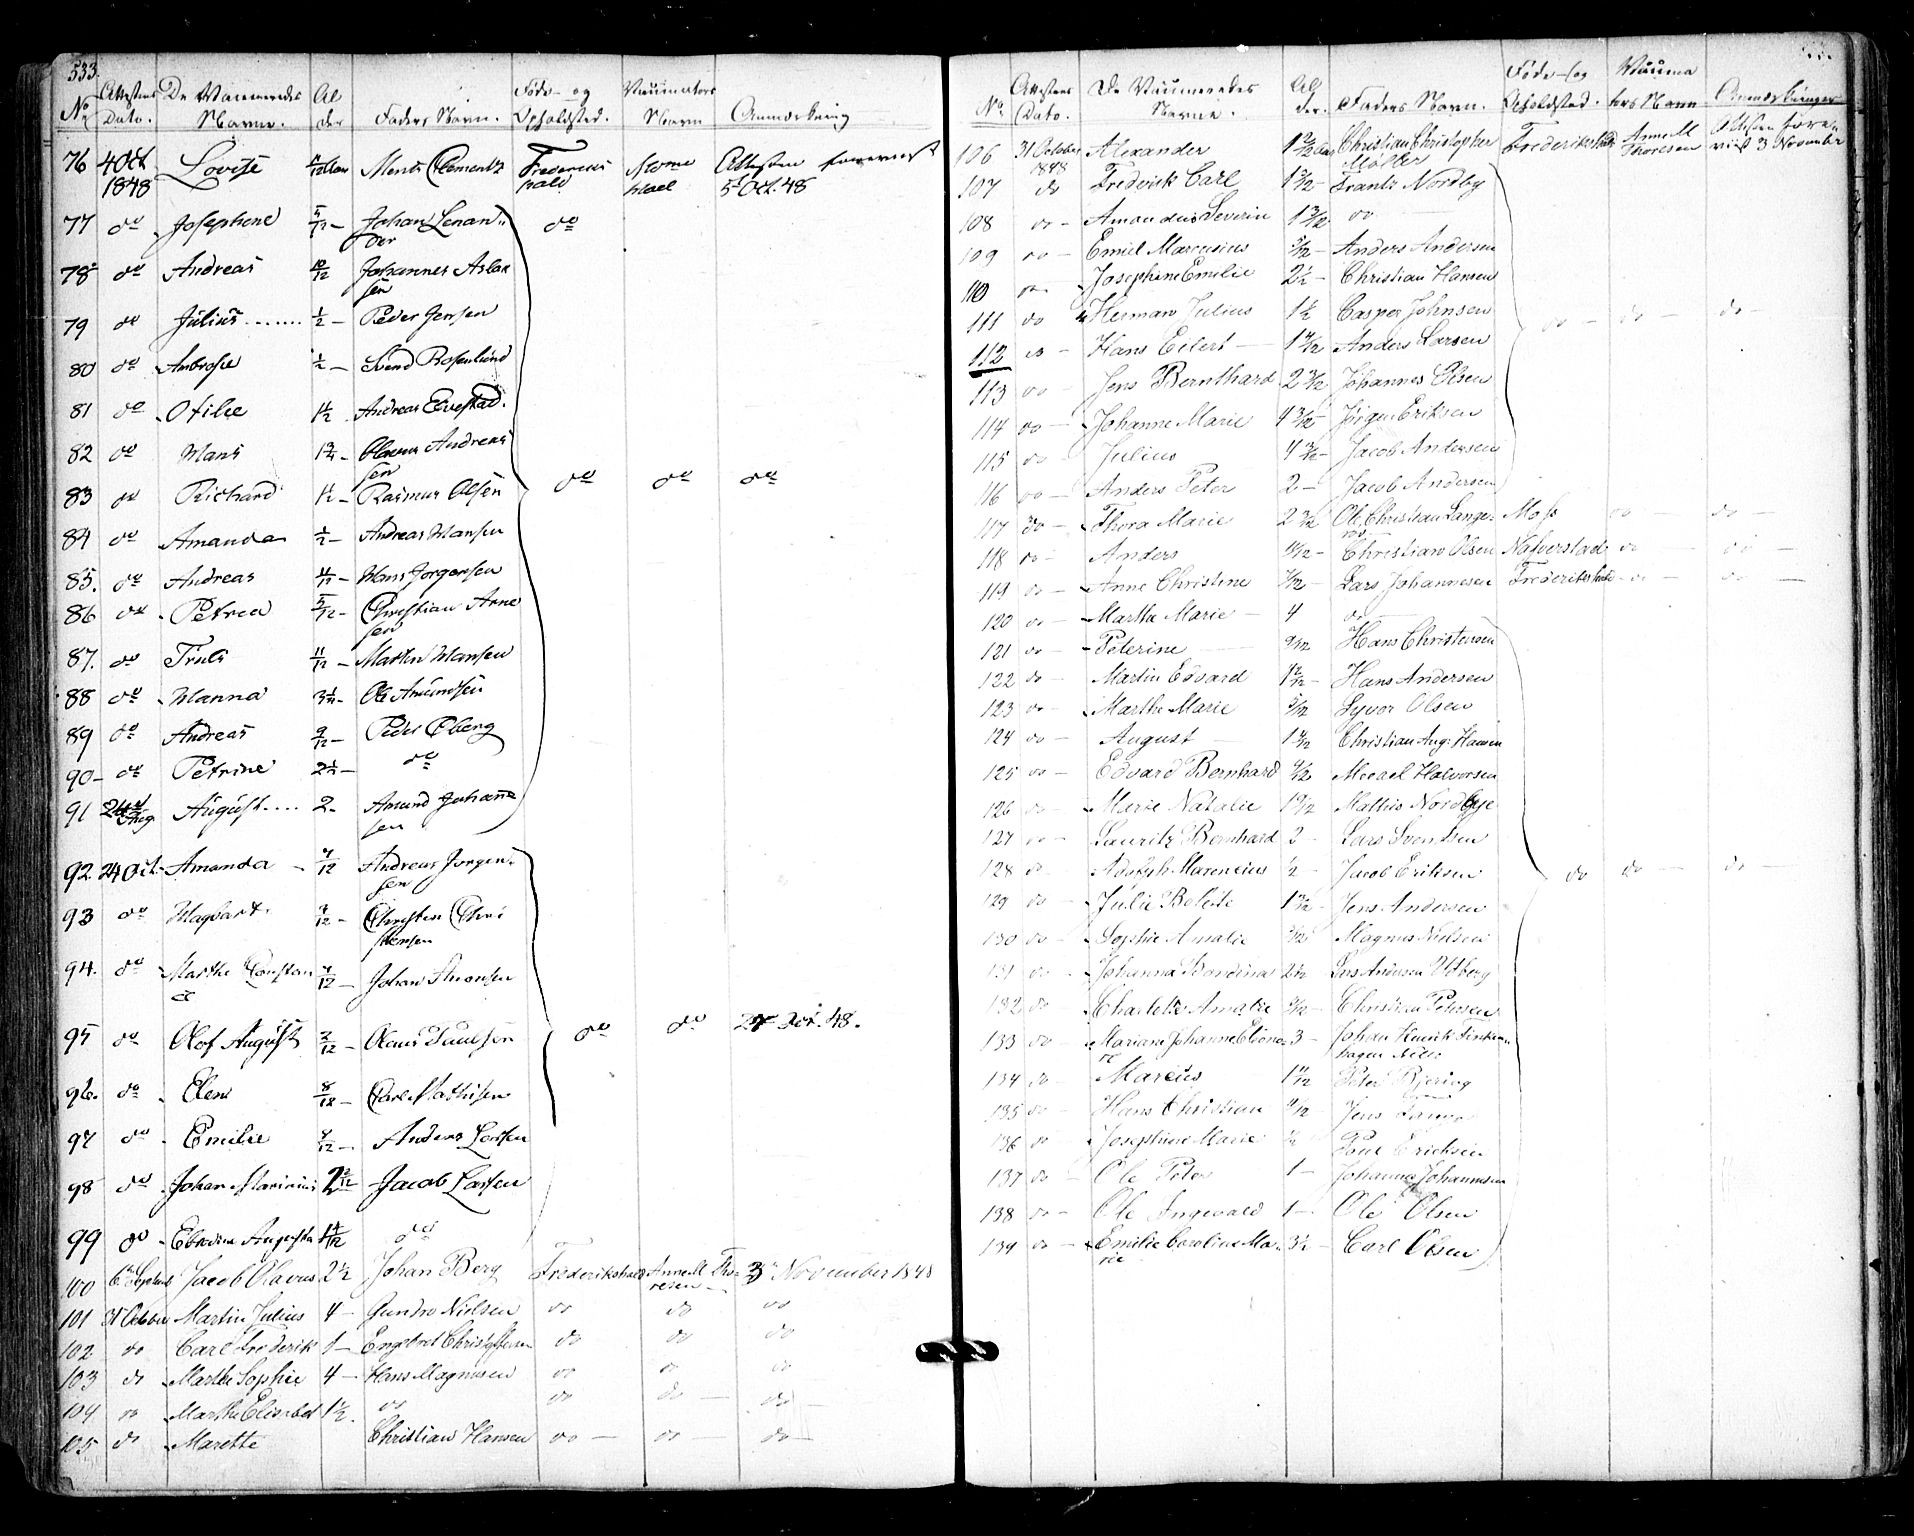 533.
No Attestens Dato. De Vaccineredes Navne. Alder Faders Navn. Føde- og Opholdsted. Vaccinators Navn Anmærkning
76 4 Oct 1848 Lovise Clementz Frederikshald Attesten 5t Oct. 48
77 do Josephine 5/12 - Johan Lenander do
78 do Andreas 10/12 Johannes Aslaksen
79 do Julius 1/2 - Peder Jensen
80 do Ambrose 1/2 - Svend Rosenlund
81 do Otilie 1 1/2 Andreas
82 do Hans Andreassen
83 do Richard 1 1/2 - Rasmus Olsen do do do
84 do Amanda 1/2 - Andreas Hansen
85. do Andreas 11/12 - Hans Jørgensen
86 do Petrea 5/12 - Christian Arnesen
87. do Truls 11/12 - Martin Hansen
88 do Hanna Ole Amundsen
89 do Andreas 9/12 - Peder Oberg
90 - do Petrine do
91 August 2 - Amund Johannesen
92. 24 Oct. Amanda - 7/12 Andreas Jørgensen
93 do Hagbart Christen Christensen
94. do Marthe Constance 7/12 - Johan Simonsen
95 do Olof August 2/12 - Claus Paulsen do do
96. do Elen 8/12 - Carl Mathisen
97 do Emilie Anders Larsen
98 do Johan Marinius Jacob Larsen
99 do Augusta 1 4/12 do
100 Jacob Olavus 2 1/2 Johan Berg Frederikshald Anne M Thoresen 3 November 1848
101 31 October Martin Julius 4 - Gundro Nielsen do do do
102 do Carl Frederik 1 - Engebret Christophersen do do do
103 do Marthe Sophie 4 - Hans Magnusen do do do
104 do Marthe Elisabet 1 1/2 do do do do
105 do Marette Christian Hansen do do do
No Attestens Dato. De Vaccineredes Navne. Alder. Faders Navn. Føde- og Opholdsted. Vaccinators Navn Anmærkninger
106 31 October 1848 Alexander Christian Christopher Møller Frederikshald Anne M Thoresen Attesten 3 November
107 do Fredrik Carl Frants Nordby
108 do Amandus Severin 1 3/12 do
109 do Emiel Marcusius Anders Andersen
110 do Josephine Emilie 2 1/2 - Christian Hansen
111 do Herman Julius 1 1/2 Casper Johnsen do do do
112 do Hans Eilert Anders Larsen
113 do Jens Bernthard 2 3/12 Johannes Olsen
114 do Johanne Marie 4 3/12 Jørgen Eriksen
115 do Julius Jacob Andersen
116 do Anders Peter 2 - Jacob Andersen
117 do Thora Marie Ole Christian Moss do do
118 do Anders Christian Olsen Naverstad do do
119 do Anne Christine Lars Johannesen Frederikshald do do
120 do Marthe Marie 4 do
121 do Peterine 9/12 Hans Christensen
122 do Martin Edvard Hans Andersen
123 do Marthe Marie Syver Olsen
124 do August Christian Aug. Hansen
125 do Edvard Bernhard Micael Halvorsen
126 do Marie Natalie Mathis Nordbye
127 do Lauritz Bernhard 2 - Lars Svendsen
128 do Adolph Marencius 1/2 - Jacob Eriksen do do do
129 do Julie Bolette Jens Andersen
130 do Sophie Amalie Magnus Nielsen
131 do Johanna Berdina 2 1/2 Lars Andersen
132 do Charlotte Amalie Christian Petersen
133 do Mariane Johanne Elionore 3 - Johan Henrik
134 do Marcius Peter Bjering
135 do Hans Christian Jens
136 do Josephine Marie Poul Erichsen
137 do Ole Peter 1 - Johannes Johannesen
138 do Ole Ingevald 1 - Ole Olsen
139 do Emilie Caroline Marie 3 1/2 - Carl Olsen